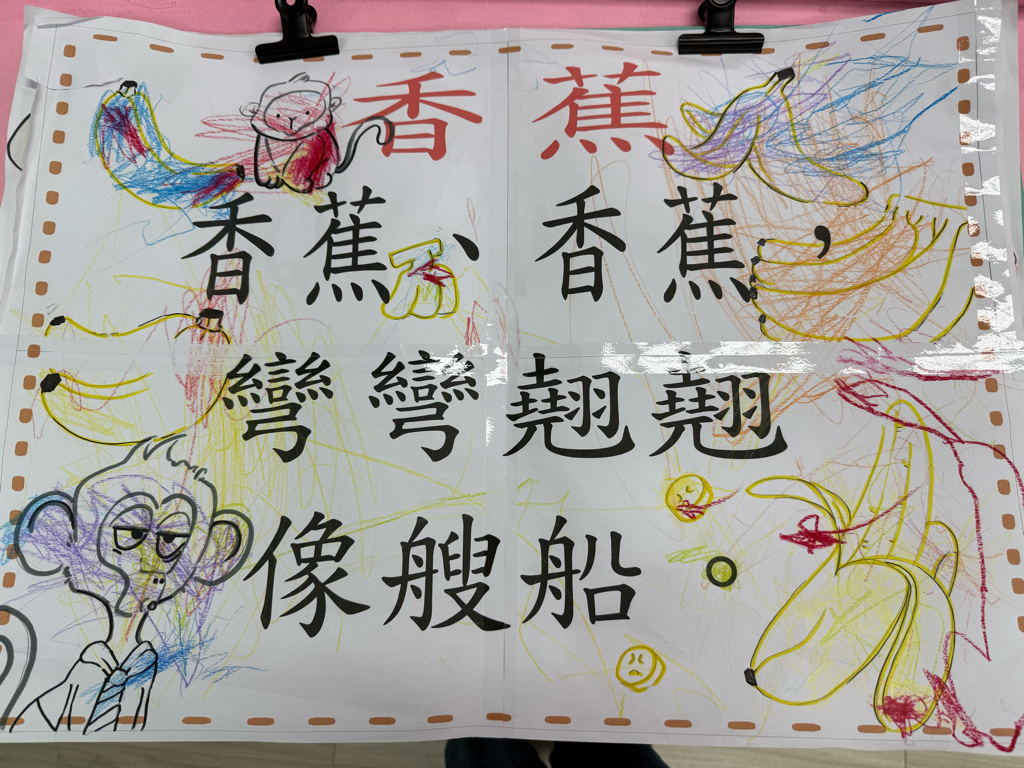 香蕉
香蕉、香蕉,
彎彎翹翹
像艘船。